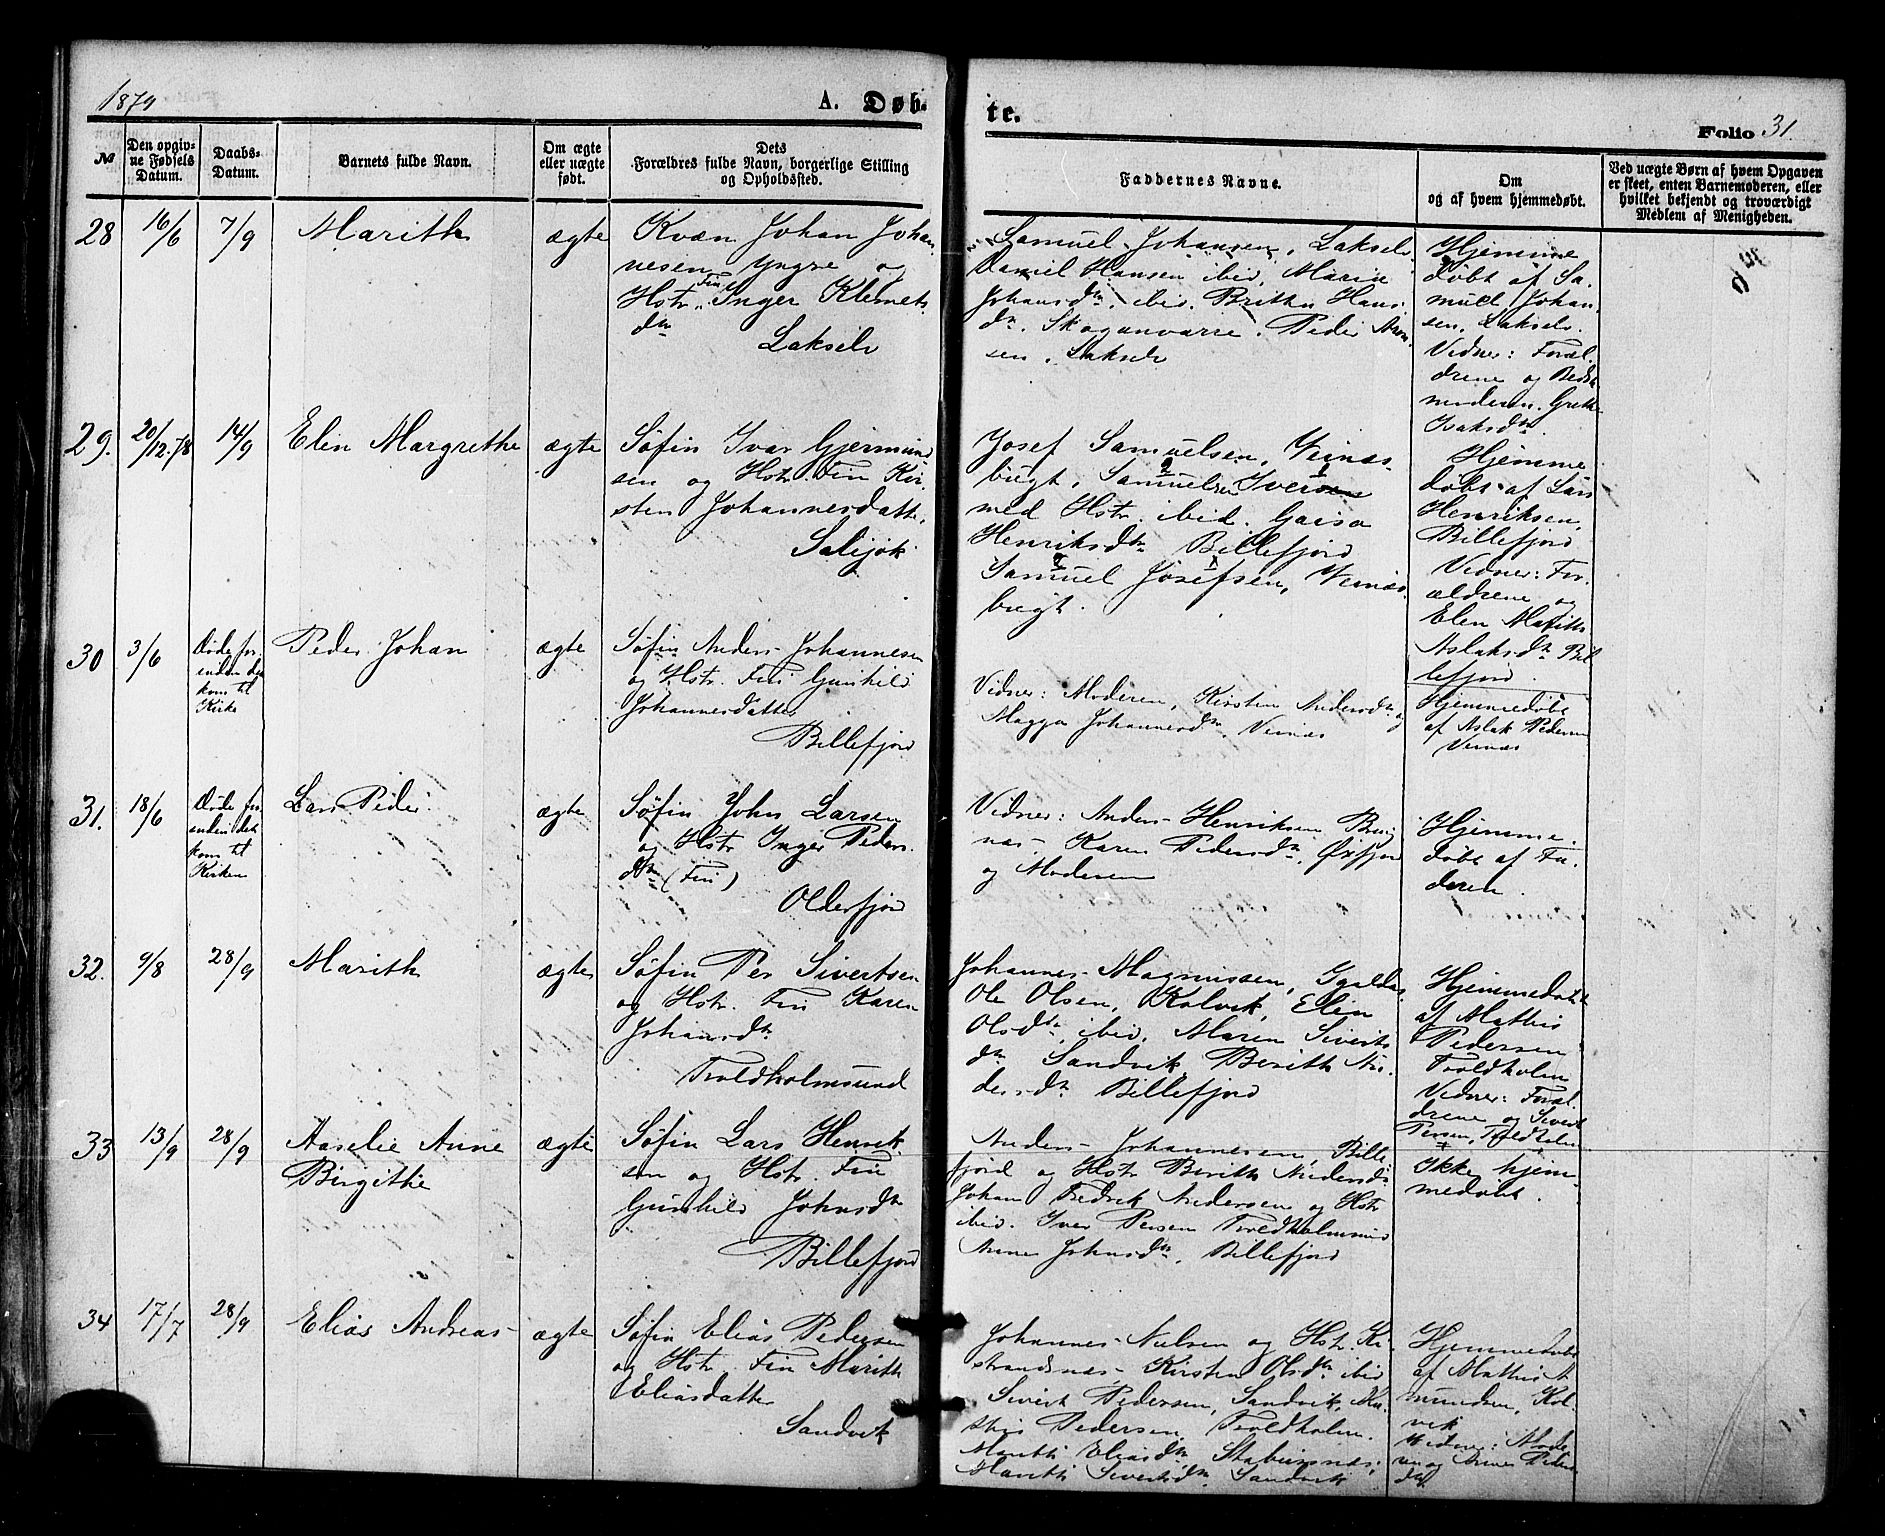 1879
A. Døb-
te.
Folio 31
№
Den opgiv-
ne Fødsels
Datum.
Daabs-
Datum.
Barnets fulde Navn.
Om ægte
eller uægte
født.
Dets
Forældres fulde Navn, borgerlige Stilling
og Opholdssted.
Faddernes Navne.
Om
og af hvem hjemmedøbt.
Ved uægte Børn af hvem Opgaven
er skeet, enten Barnemoderen, eller
hvilket bekjendt og troværdigt
Medlem af Menigheden.
28
16/6
7/9
Marith
ægte
Kvæn Johan Johan
nesen Yngre og
Hstr. Fin Inger Klemets
dtr
Lakselv
Samuel Johansen, Lakselv
Daniel Hansen ibid, Marie
Johansdtr ibid. Britha Hans
dtr. Skoganvarre. Peder
sen, Lakselv
Hjemme
døbt af Sa-
muel Johan
sen, Lakselv.
Vidner: Foræl
drene og Bedste
moderen Grethe
Isaksdtr
29.
20/12.78
14/9
Elen Margrethe
ægte
Søfin Ivar Gjermund
sen og Hstr. Fin Kir
sten Johannesdatter,
Salijok
Josef Samuelsen, Veinæs-
bugt, Samuelsen Iver
med Hstr. ibid. Gaisa
Henriksdtr Billefjord
Samuel Josefsen, Veinæs
bugt.
Hjemme
døbt af Lars
Henriksen,
Billefjord
Vidner: For
ældrene og
Elen Marith
Aslaksdtr Bil
lefjord.
30
3/6
Døde for
inden det
kom til
Kirke
Peder Johan
ægte
Søfin Anders Johannesen
og Hstr. Fin Gunhild
Johannesdatter
Billefjord
Vidner: Moderen, Kirsten Andersdtr og
Magga Johannesdtr, Veinæs
Hjemmedøbt
af Aslak Pedersen
Veinæs
31.
18/6
Døde for
inden det
kom til
Kirken
Lars Peder
ægte
Søfin John Larsen
og Hstr Inger Peders
dtr (Fin)
Olderfjord
Vidner: Anders Henriksen
næs Karen Pedersdtr,
og Moderen
Hjemme
døbt af Fa-
deren.
32.
9/8
28/9
Marith
ægte
Søfin Per Sivertsen
og Hstr. Fin Karen
Johansdtr
Troldholmsund
Johannes Magnussen,
Ole Olsen, Kolvik, Elen
Olsdtr ibid, Maren Siverts
dtr Sandvik, Berith An
dersdtr Billefjord
Hjemmedøbt
af Mathis
Pedersen
Troldholm
Vidner: Foræl
drene og Sivert
Persen, Troldholm
33
13/9
28/9
Aaselie Anne
Birgithe
ægte
Søfin Lars Henrik
sen og Hstr. Fin
Gunhild Johnsdtr
Billefjord
Anders Johannesen, Bille
fjord og Hstr Berith Andersdtr
Johan Fredrik Andersen og Hstr
ibid. Iver Persen Troldholmsund
Anne Johnsdtr, Billefjord
Ikke hjem-
medøbt.
34
17/7
28/9
Elias Andreas
ægte
Søfin Elias Pedersen
og Hstr. Fin Marith
Eliasdatter
Sandvik
Johannes Nielsen og Hstr. Ki-
strandsnæs, Kirsten Olsdtr ibid
Sivert Pedersen, Sandvik,
Pedersen, Troldholm.
Marith Eliasdtr Stabursnæs,
Marith Sivertsdtr, Sandvik
Hjemmedøbt
af Mathis A
mundsen, Kol
vik
Vidner: Mode
ren og Anne Peders
dtr